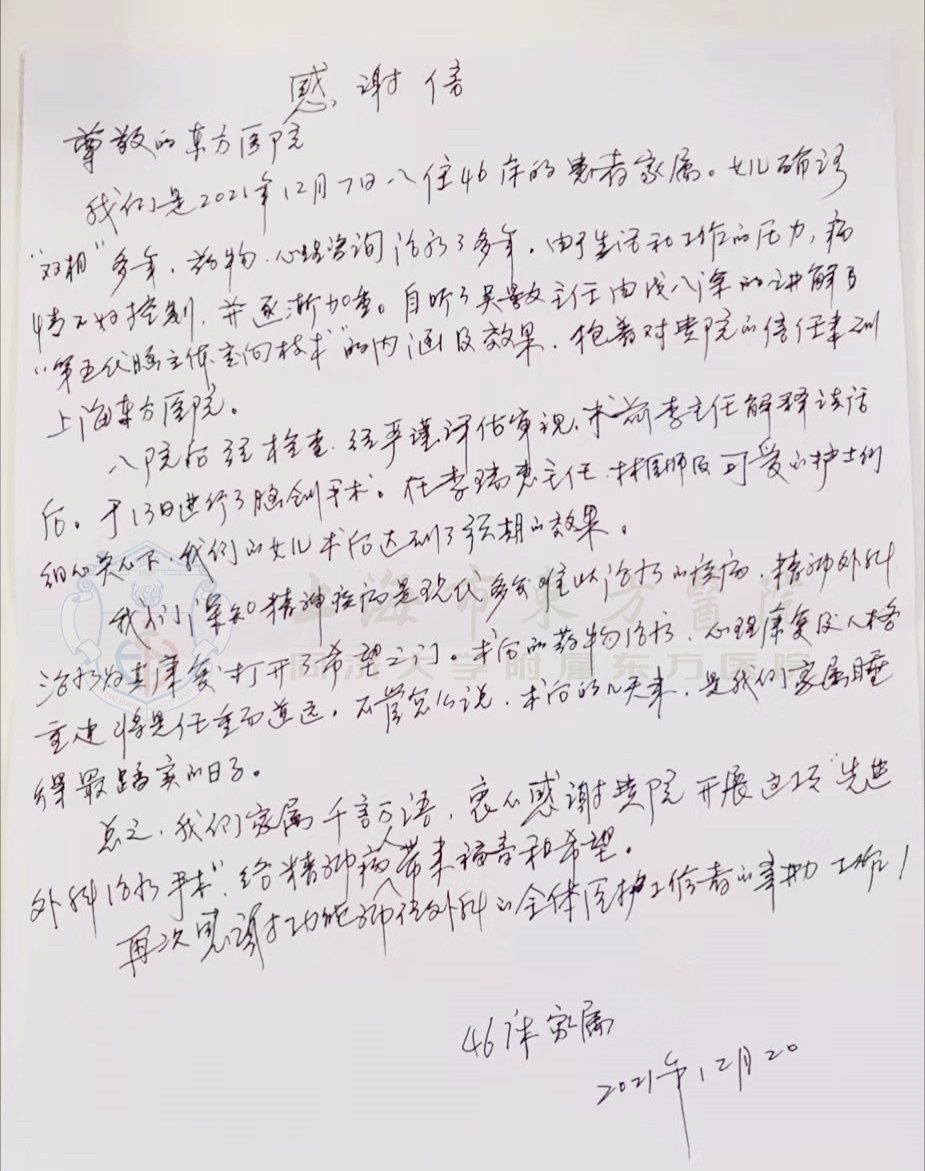 感谢信
尊敬的东方医院
我们是2021年12月7日入住46床的患者家属。女儿确诊
“双相”多年，药物、心理咨询治疗了多年，由于生活和工作的压力，病
情不好控制，并逐渐加重。自听了吴主任由浅入深的讲解了
“第五代脑立体定向技术”的内涵及效果，抱着对贵院的信任来到
上海东方医院。
入院后经检查、经严谨评估审视，术前李主任解释谈话
后。于13日进行了脑部手术。在李主任、林医师及可爱的护士们
细心关心下，我们的女儿术后达到了预期的效果。
我们深知精神疾病是现代多发难以治疗的疾病，精神外科
治疗为其康复打开了希望之门。术后的药物治疗、心理康复及人格
重建将是任重而道远。不管怎么说，术后的几天来，是我们家属睡
得最踏实的日子。
总之，我们家属千言万语，衷心感谢贵院开展这项“先进
外科治疗手术”，给精神病人带来福音和希望。
再次感谢功能神经外科的全体医护工作者的辛勤工作！
46床家属
2021年12月20
上海市东方醫院
同济大学附属东方医院